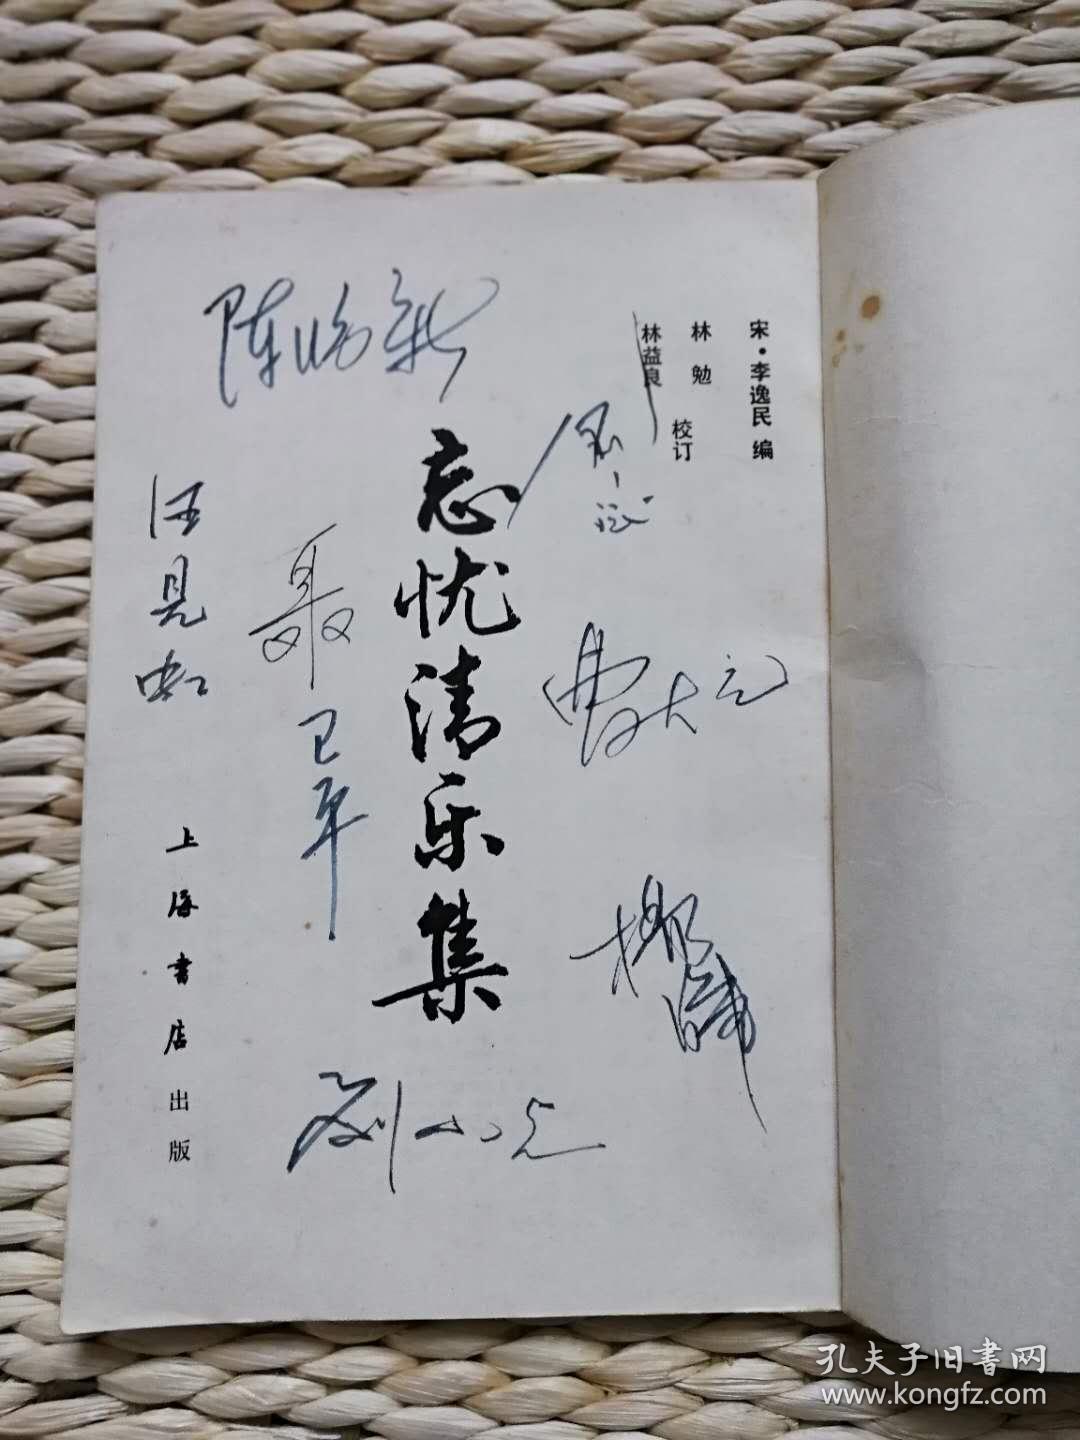 宋·李逸民 编
林勉
林益良
校订
陈临新
忘忧清乐集
汪见虹
聂卫平
曹大元
刘小光
上海书店出版
孔夫子旧書网
www.kongfz.com